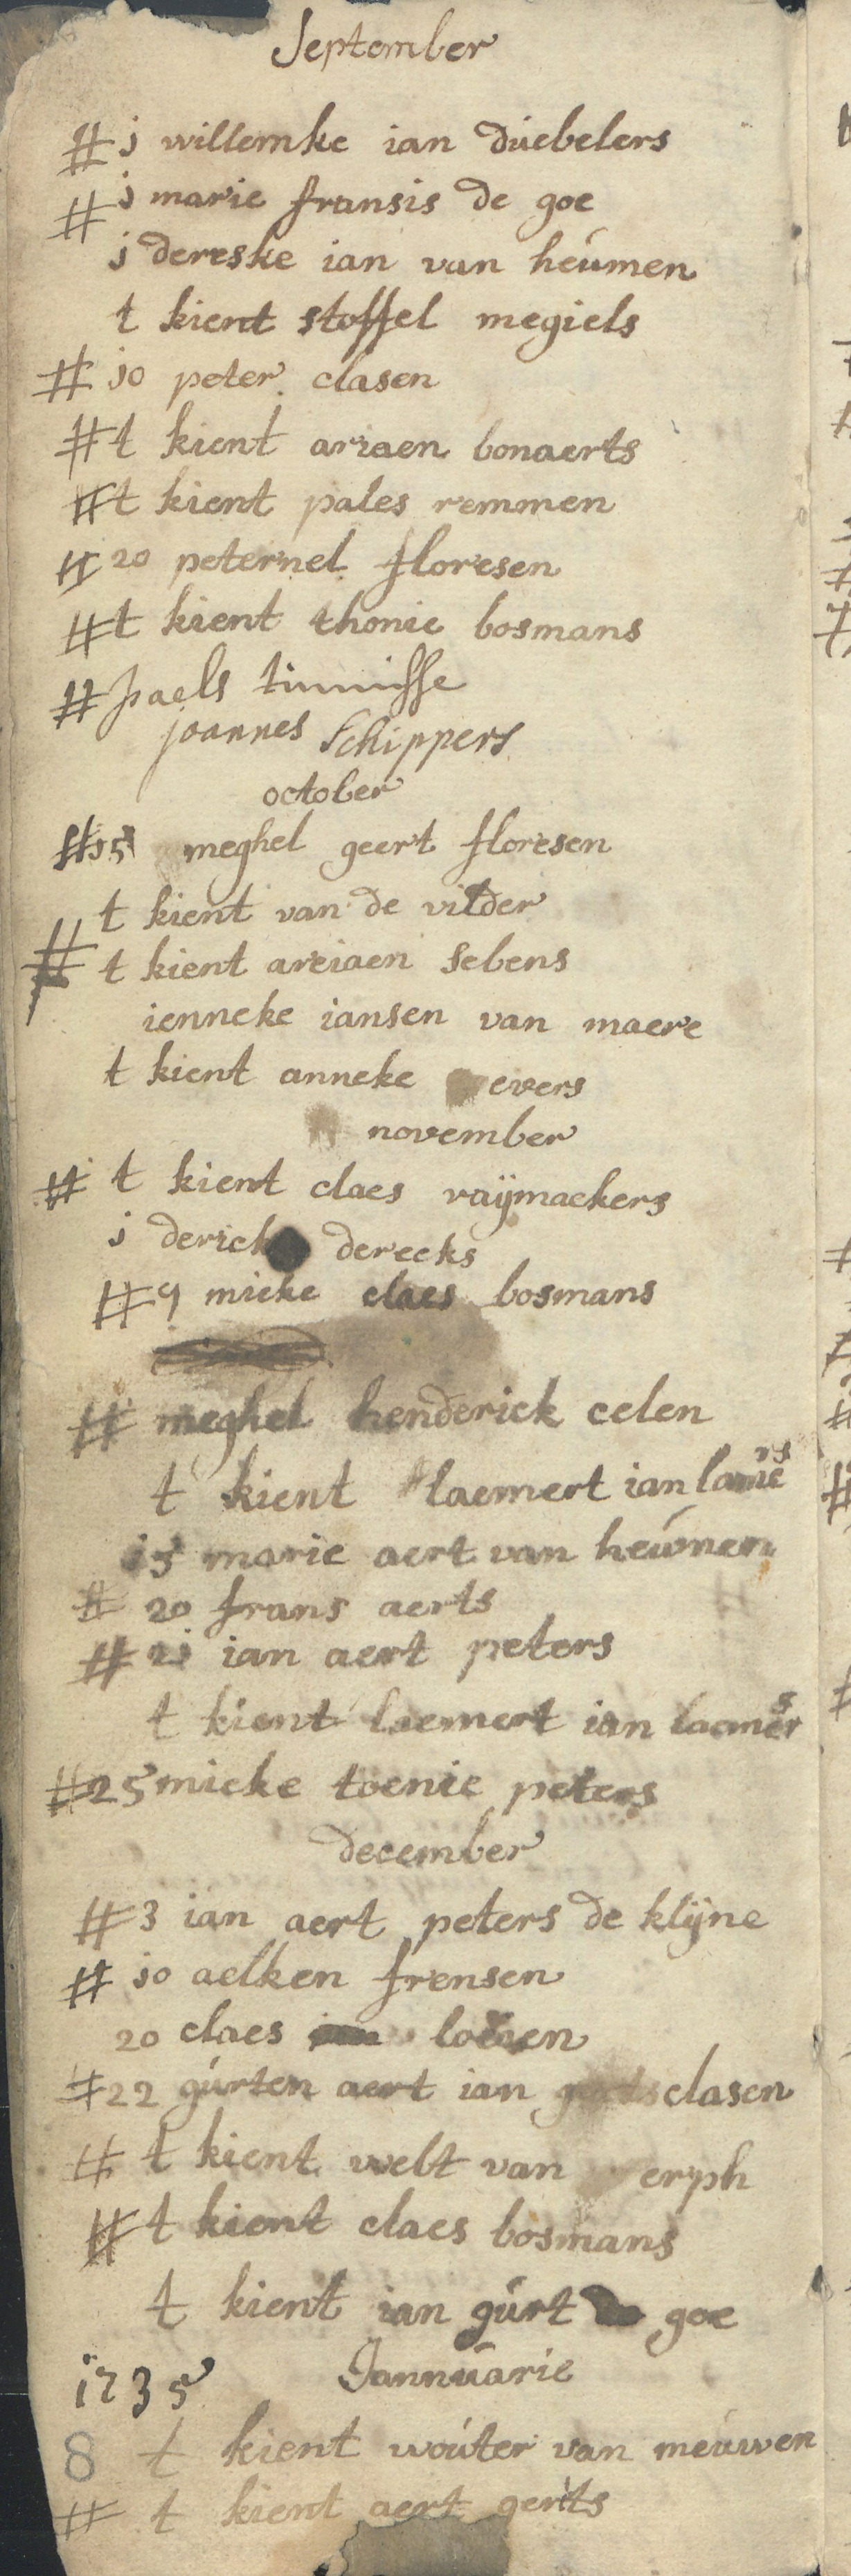 September
# j willemke ian duebelers
# j marie fransis de goe
j dereske ian van heúmen
t kient stoffel megiels
# jo peter clasen
# t kient ariaen bonaerts
# t kient pales remmen
# 20 peternel floresen
# t kient thonie bosmans
# paels tinnisse
joannes Schippers
october
# j5 meghel geert floresen
t kient van de vilder
# t kient areiaen sebens
ienneke iansen van maere
t kient anneke evers
november
# t kient claes raijmaekers
j derick derecks
# 9 mieke claes bosmans
# meghel henderick celen
t kient laemert ian
j5 marie aert van heúmen
# 20 frans aerts
# 2j ian aert peters
t kient laemert ian laemers
# 25 mieke toenie peters
december
# 3 ian aert peters de klijne
# jo aelken frensen
20 claes
# 22 gúrten aert ian clasen
# t kient welt van erph
# t kient claes bosmans
t kient ian gúrt de goe
1735 Jannúarie
8 t kient woúter van meúwen
# t kient aert gerits